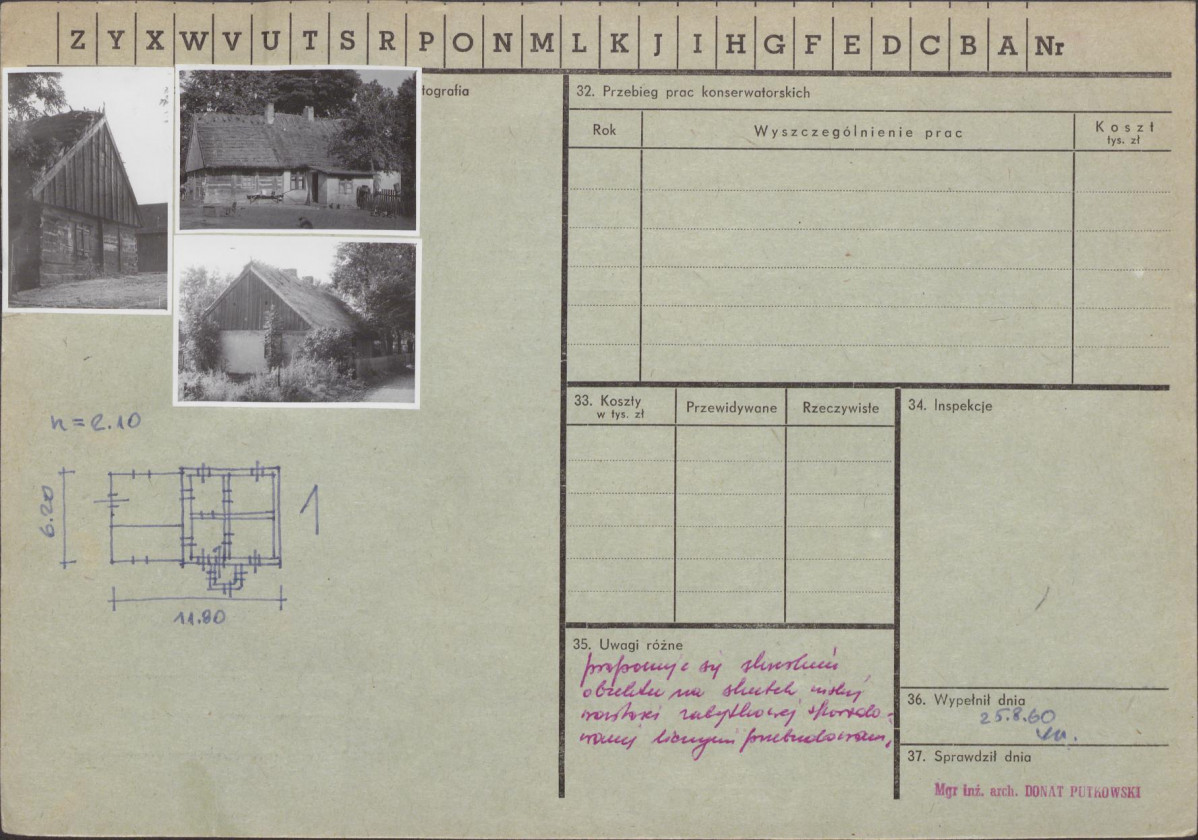 Z Y X W V U T S R P O N M L K J I H G F E D C B A Nr
tografia
32. Przebieg prac konserwatorskich
Rok
Wyszczególnienie prac
Koszt
tys. zł
33. Koszty
w tys. zł
Przewidywane
Rzeczywiste
34. Inspekcje
h = 2.10
6.20
11.80
1
35. Uwagi różne
proponuje się skreślenie
obiektu na skutek niskiej
wartości zabytkowej spowodo-
wanej licznymi przebudowami,
36. Wypełnił dnia
25.8.60
37. Sprawdził dnia
Mgr inż. arch. DONAT PUTKOWSKI